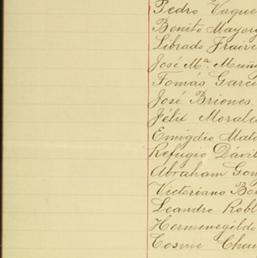 Pedro Vaque
Benito Mayor
Librado Fraire
José Ma. Muñ
Tomás Garci
José Briones
Félix Morale
Emigdio Mat
Refugio Dávil
Abraham Gom
Victoriano Be
Leandro Robl
Hermenegildo
Cosme Chav